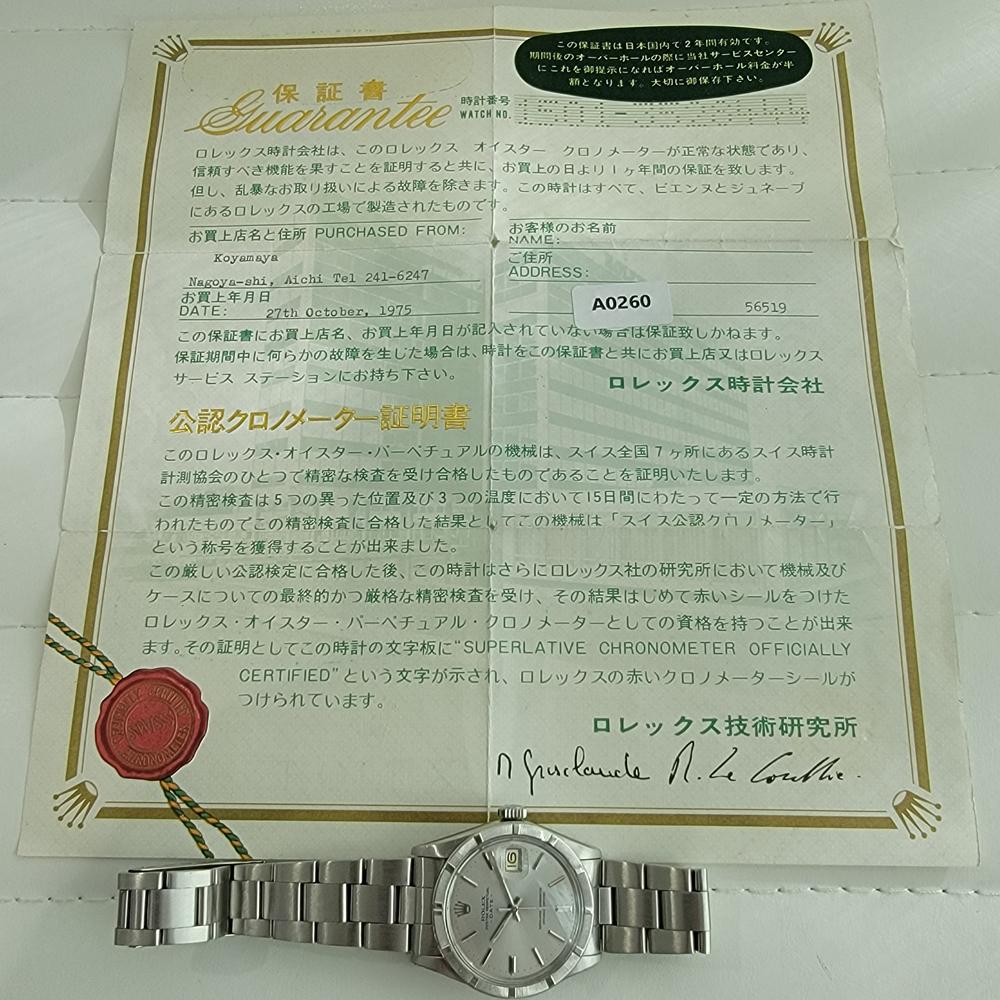 この保証書は日本国内で2年間有効です。
期間後のオーバーホールの際に当社サービスセンター
にこれを御提示になればオーバーホール料金が半
額となります。大切に御保存下さい。
保証書
Guarantee
時計番号
WATCH NO.
ロレックス時計会社は、このロレックス オイスター クロノメーターが正常な状態であり、
信頼すべき機能を果すことを証明すると共に、お買上の日より1ヶ年間の保証を致します。
但し、乱暴なお取り扱いによる故障を除きます。この時計はすべて、ビエンヌとジュネーブ
にあるロレックスの工場で製造されたものです。
お買上店名と住所 PURCHASED FROM:
Koyamaya
Nagoya-shi, Aichi Tel 241-6247
お買上年月日
DATE: 27th October, 1975
お客様のお名前
NAME:
ご住所
ADDRESS:
A0260
56519
この保証書にお買上店名、お買上年月日が記入されていない場合は保証致しかねます。
保証期間中に何らかの故障を生じた場合は、時計をこの保証書と共にお買上店又はロレックス
サービス ステーションにお持ち下さい。
ロレックス時計会社
公認クロノメーター証明書
このロレックス・オイスター・パーペチュアルの機械は、スイス全国7ヶ所にあるスイス時計
計測協会のひとつで精密な検査を受け合格したものであることを証明いたします。
この精密検査は5つの異った位置及び3つの温度において15日間にわたって一定の方法で行
われたものでこの精密検査に合格した結果としてこの機械は「スイス公認クロノメーター」
という称号を獲得することが出来ました。
この厳しい公認検定に合格した後、この時計はさらにロレックス社の研究所において機械及び
ケースについての最終的かつ厳格な精密検査を受け、その結果はじめて赤いシールをつけた
ロレックス・オイスター・パーペチュアル・クロノメーターとしての資格を持つことが出来
ます。その証明としてこの時計の文字板に“SUPERLATIVE CHRONOMETER OFFICIALLY
CERTIFIED”という文字が示され、ロレックスの赤いクロノメーターシールが
つけられています。
ロレックス技術研究所
CHRONOMETER
16
ROLEX
DATE